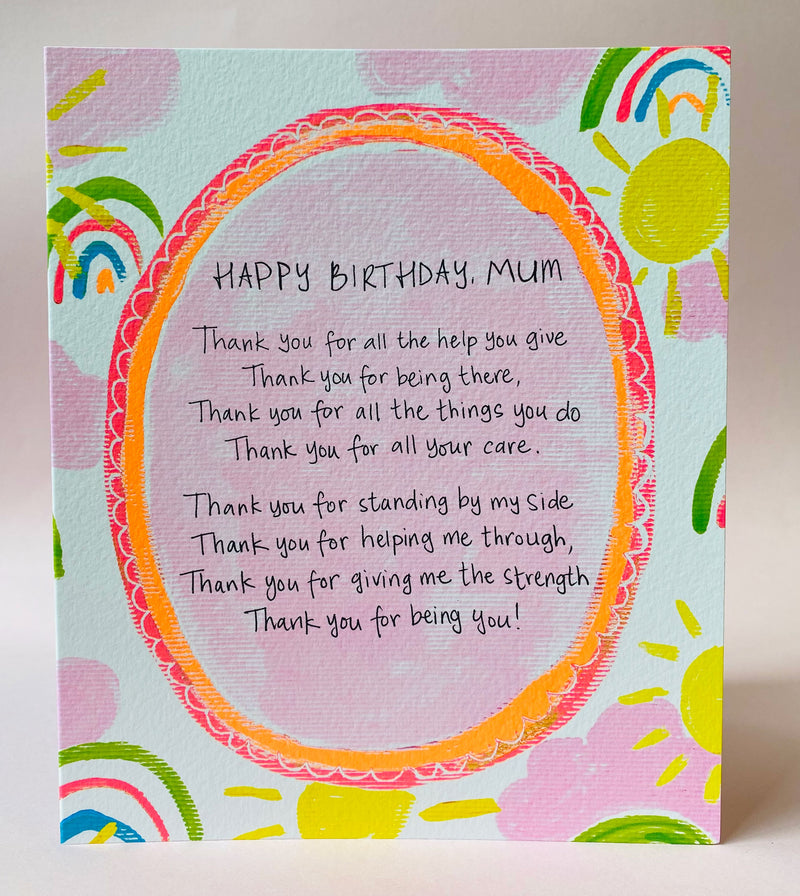 HAPPY BIRTHDAY, MUM
Thank you for all the help you give
Thank you for being there,
Thank you for all the things you do
Thank you for all your care.
Thank you for standing by my side
Thank you for helping me through,
Thank you for giving me the strength
Thank you for being you!